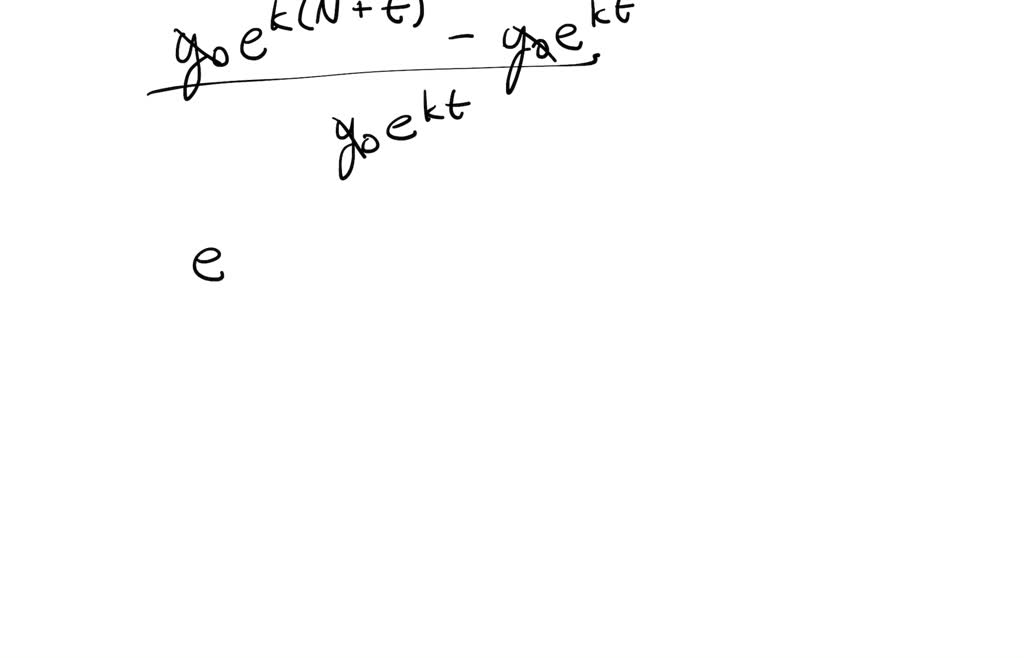 y₀e^{k(N+t)} - y₀e^{kt}
y₀e^{kt}
e